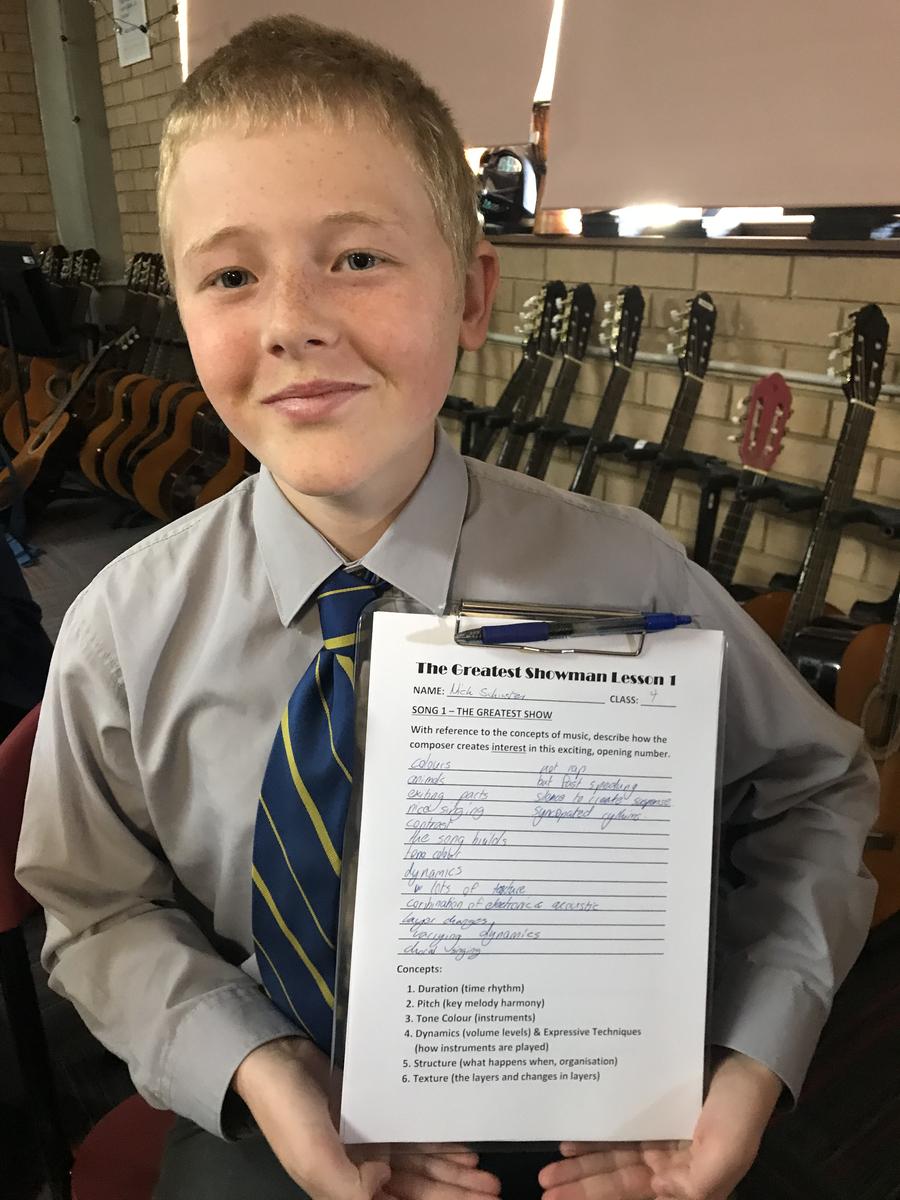 The Greatest Showman Lesson 1
NAME: Nick CLASS: 4
SONG 1 – THE GREATEST SHOW
With reference to the concepts of music, describe how the
composer creates interest in this exciting, opening number.
colours not rap
animals but fast speaking
exiting parts silence to create suspense
nice singing syncopated rythms
contrast
the song builds
tone colour
dynamics
lots of texture
combination of electronic & acoustic
layer changes
varying dynamics
choral singing
Concepts:
1. Duration (time rhythm)
2. Pitch (key melody harmony)
3. Tone Colour (instruments)
4. Dynamics (volume levels) & Expressive Techniques
(how instruments are played)
5. Structure (what happens when, organisation)
6. Texture (the layers and changes in layers)